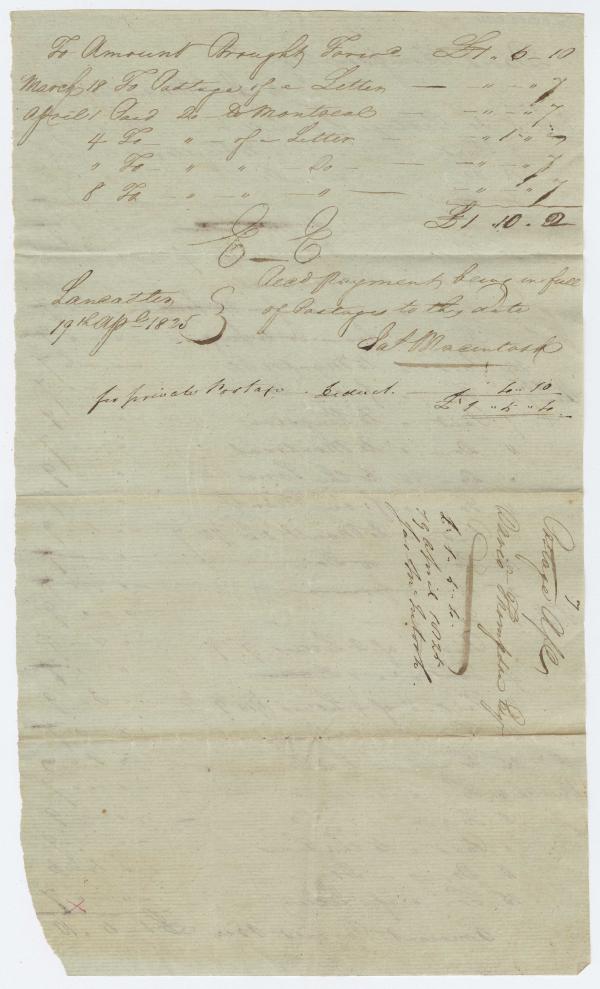 To Amount Brought Forwd £1 „ 6 – 10
March 18 To Postage of a Letter — „ – „ 7
April 1 Paid Do – Do Montreal — „ – „ 7
4 To – „ – of a Letter – „ 1 – „
„ To – „ „ Do – — – „ – „ 7
8 To – „ „ – „ — – „ – „ 7
£1 „ 10 – 2
E – E
Lancaster
19th Apl 1825
Recd Payment being in full
of Postages to this date
Jas Macintosh
for private Postage - Deduct. —
£ 1 „ 5 „ 4
Postage A/c
David Thompson Esqr
£ 1 – 5 – 4
19 April 1825
Jas McIntosh.